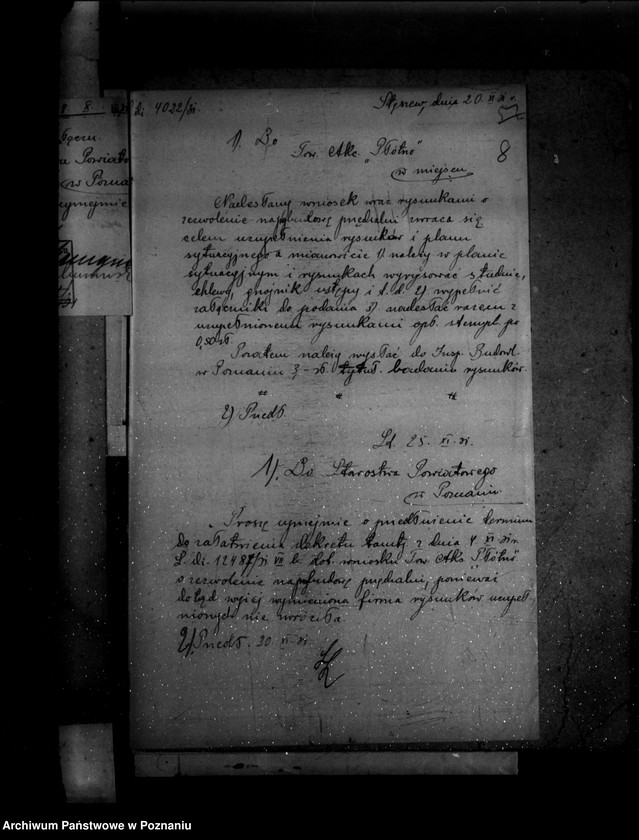 8 X.
Powiato
w Pozna
4022/31
Stęszew, dnia 20. XI 31 r.
8
1) Do
Tow. Akc. "Płótno"
w miejscu
Nadesłany wniosek wraz rysunkami o
zezwolenie na przebudowę przędzalni zwraca się
celem uzupełnienia rysunków i planu
sytuacyjnego a mianowicie 1) należy w planie
sytuacyjnym i rysunkach wyrysować studnie,
chlewy, gnojnik ustępy i t. d. 2) wypełnić
załączniki do podania 3) nadesłać razem z
uzupełnionem rysunkami opł. stempl. po
0,50 zł.
Pozatem należy wysłać do Insp. Budowl.
w Poznaniu 3 – zł. tytuł. badania rysunków.
" " "
2) Przedł.
St. 25. XI. 31.
1). Do Starostwa Powiatowego
w Poznaniu
Proszę uprzejmie o przedłużenie terminu
do załatwienia dekretu tamtj. z dnia 4 XI 31 r.
L. dz. 12487/31 VII b. dot. wniosku Tow. Akc. "Płótno"
o zezwolenie na przebudowę przędzalni, ponieważ
dotąd wyżej wymieniona firma rysunków uzupeł-
nionych nie zwróciła.
2) Przedł. 30 XI 31.
Archiwum Państwowe w Poznaniu